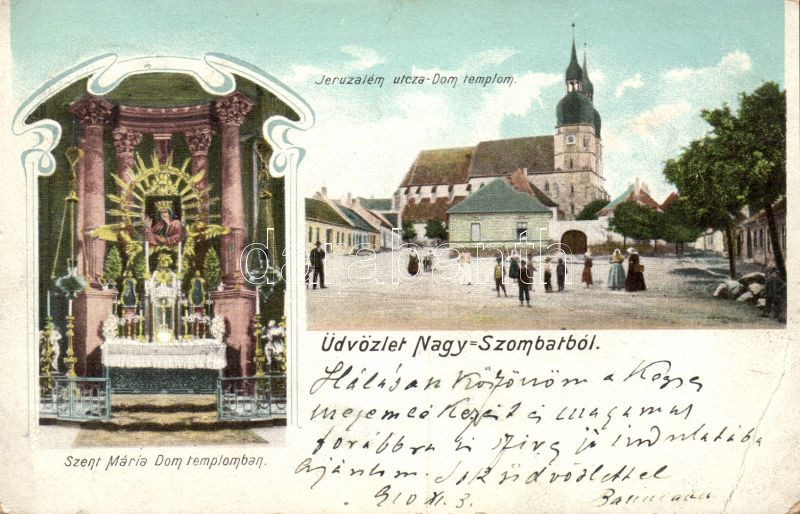 Jeruzalém utcza-Dom templom.
darabanth.com
Üdvözlet Nagy=Szombatból.
Szent Mária Dom templomban.
Hálásan köszönöm a kegyes
megemlékezést és magamat
továbbra is szíves jó indulatába
ajánlom. Sok üdvözlettel
910 XI. 3. Baumann